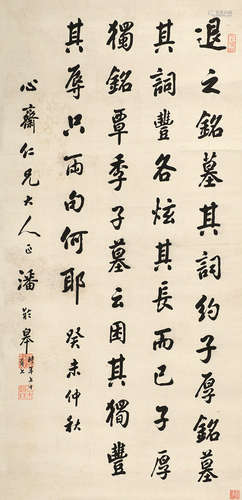 退之銘墓其詞約子厚銘墓
其詞豐各炫其長而已子厚
獨銘覃季子墓云困其獨豐
其辱只兩句何耶 癸未仲秋
心齋仁兄大人正 潘齡皋
時年七十有七